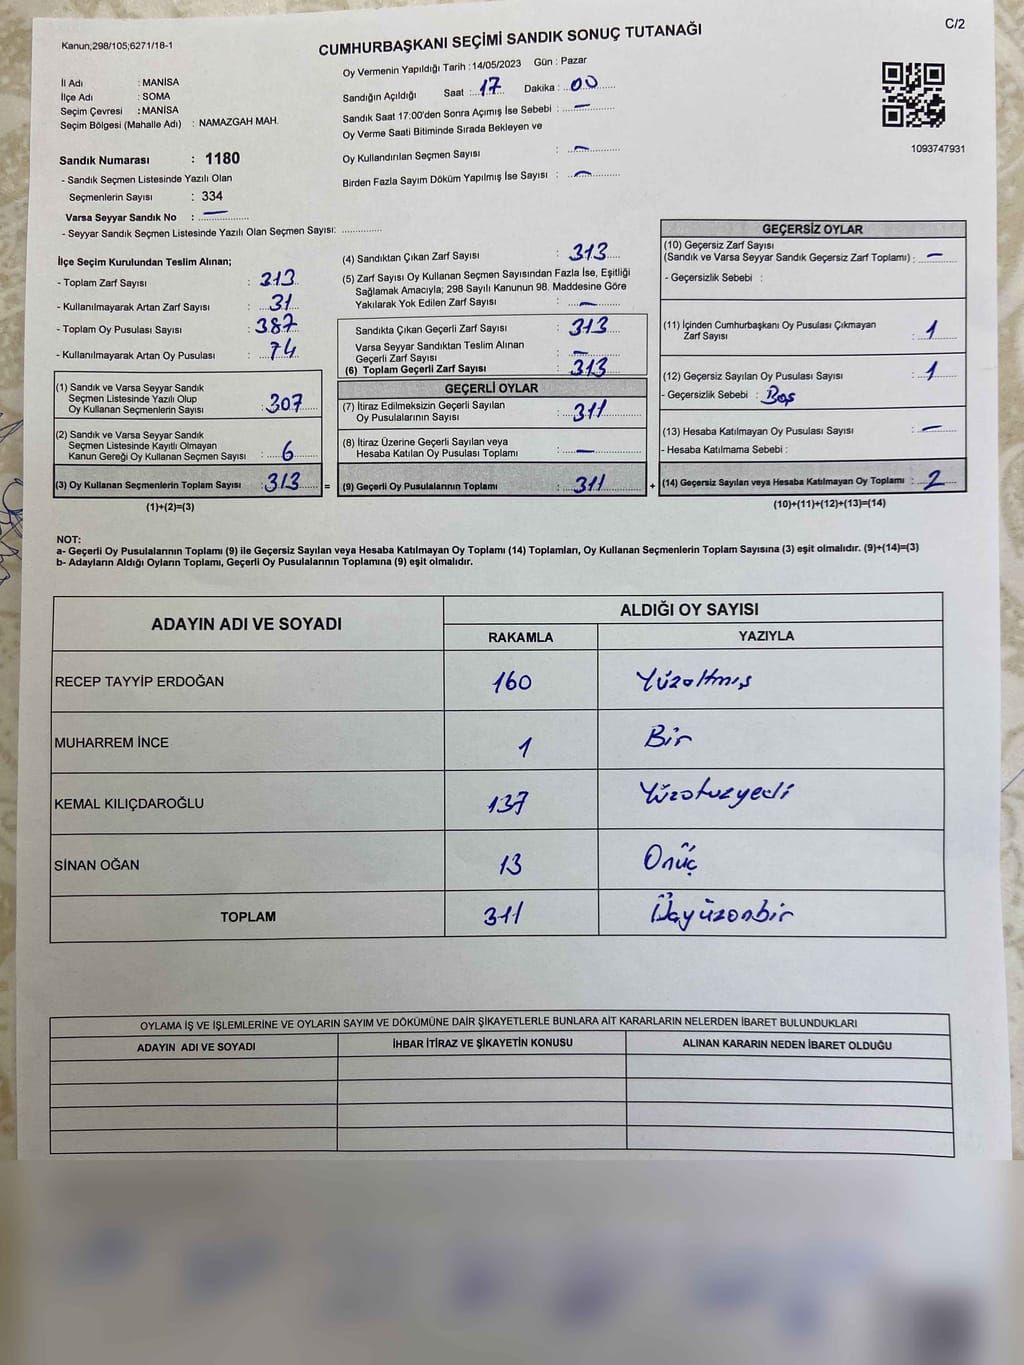 Kanun;298/105;6271/18-1
C/2
CUMHURBAŞKANI SEÇİMİ SANDIK SONUÇ TUTANAĞI
İl Adı : MANİSA
İlçe Adı : SOMA
Seçim Çevresi : MANİSA
Seçim Bölgesi (Mahalle Adı) : NAMAZGAH MAH.
Sandık Numarası : 1180
- Sandık Seçmen Listesinde Yazılı Olan
Seçmenlerin Sayısı : 334
Varsa Seyyar Sandık No : —
- Seyyar Sandık Seçmen Listesinde Yazılı Olan Seçmen Sayısı: ..............
Oy Vermenin Yapıldığı Tarih : 14/05/2023 Gün : Pazar
Sandığın Açıldığı Saat : 17 Dakika : 00
Sandık Saat 17:00'den Sonra Açımış İse Sebebi : —
Oy Verme Saati Bitiminde Sırada Bekleyen ve
Oy Kullandırılan Seçmen Sayısı : —
Birden Fazla Sayım Döküm Yapılmış İse Sayısı : —
1093747931
İlçe Seçim Kurulundan Teslim Alınan;
- Toplam Zarf Sayısı : 313
- Kullanılmayarak Artan Zarf Sayısı : 31
- Toplam Oy Pusulası Sayısı : 387
- Kullanılmayarak Artan Oy Pusulası : 74
(1) Sandık ve Varsa Seyyar Sandık
Seçmen Listesinde Yazılı Olup
Oy Kullanan Seçmenlerin Sayısı : 307
(2) Sandık ve Varsa Seyyar Sandık
Seçmen Listesinde Kayıtlı Olmayan
Kanun Gereği Oy Kullanan Seçmen Sayısı : 6
(3) Oy Kullanan Seçmenlerin Toplam Sayısı : 313 =
(1)+(2)=(3)
(4) Sandıktan Çıkan Zarf Sayısı : 313
(5) Zarf Sayısı Oy Kullanan Seçmen Sayısından Fazla İse, Eşitliği
Sağlamak Amacıyla; 298 Sayılı Kanunun 98. Maddesine Göre
Yakılarak Yok Edilen Zarf Sayısı : —
Sandıkta Çıkan Geçerli Zarf Sayısı : 313
Varsa Seyyar Sandıktan Teslim Alınan
Geçerli Zarf Sayısı : —
(6) Toplam Geçerli Zarf Sayısı : 313
GEÇERLİ OYLAR
(7) İtiraz Edilmeksizin Geçerli Sayılan
Oy Pusulalarının Sayısı : 311
(8) İtiraz Üzerine Geçerli Sayılan veya
Hesaba Katılan Oy Pusulası Toplamı : —
(9) Geçerli Oy Pusulalarının Toplamı : 311 +
GEÇERSİZ OYLAR
(10) Geçersiz Zarf Sayısı
(Sandık ve Varsa Seyyar Sandık Geçersiz Zarf Toplamı) : —
- Geçersizlik Sebebi :
(11) İçinden Cumhurbaşkanı Oy Pusulası Çıkmayan
Zarf Sayısı : 1
(12) Geçersiz Sayılan Oy Pusulası Sayısı : 1
- Geçersizlik Sebebi : Boş
(13) Hesaba Katılmayan Oy Pusulası Sayısı : —
- Hesaba Katılmama Sebebi :
(14) Geçersiz Sayılan veya Hesaba Katılmayan Oy Toplamı : 2
(10)+(11)+(12)+(13)=(14)
NOT:
a- Geçerli Oy Pusulalarının Toplamı (9) ile Geçersiz Sayılan veya Hesaba Katılmayan Oy Toplamı (14) Toplamları, Oy Kullanan Seçmenlerin Toplam Sayısına (3) eşit olmalıdır. (9)+(14)=(3)
b- Adayların Aldığı Oyların Toplamı, Geçerli Oy Pusulalarının Toplamına (9) eşit olmalıdır.
ADAYIN ADI VE SOYADI ALDIĞI OY SAYISI
RAKAMLA YAZIYLA
RECEP TAYYİP ERDOĞAN 160 Yüzaltmış
MUHARREM İNCE 1 Bir
KEMAL KILIÇDAROĞLU 137 Yüzotuzyedi
SİNAN OĞAN 13 Onüç
TOPLAM 311 Üçyüzonbir
OYLAMA İŞ VE İŞLEMLERİNE VE OYLARIN SAYIM VE DÖKÜMÜNE DAİR ŞİKAYETLERLE BUNLARA AİT KARARLARIN NELERDEN İBARET BULUNDUKLARI
ADAYIN ADI VE SOYADI İHBAR İTİRAZ VE ŞİKAYETİN KONUSU ALINAN KARARIN NEDEN İBARET OLDUĞU